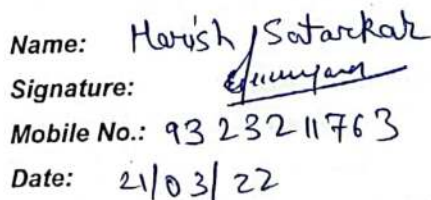 Name: Harish Satarkar
Signature:
Mobile No.: 93 23 211763
Date: 21/03/22